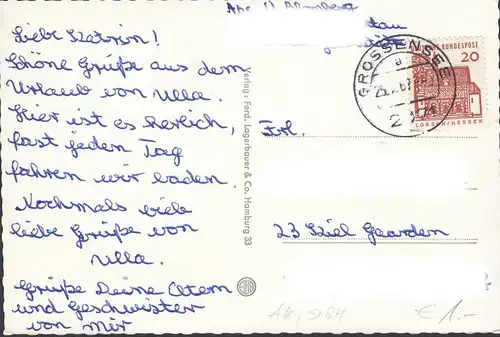 Liebe Katrin!
Schöne Grüße aus dem
Urlaub von Ulla.
Hier ist es herlich,
fast jeden Tag
fahren wir baden.
Nochmals viele
liebe Grüße von
Ulla.
Grüße Deine Eltern
und Geschwister
von mir
Verlag: Ferd. Lagerbauer & Co. Hamburg 33
Abs.
GROSSENSEE
a
DEUTSCHE BUNDESPOST
20
LORSCH/HESSEN
Frl.
23 Kiel Gaarden
€ 1.-